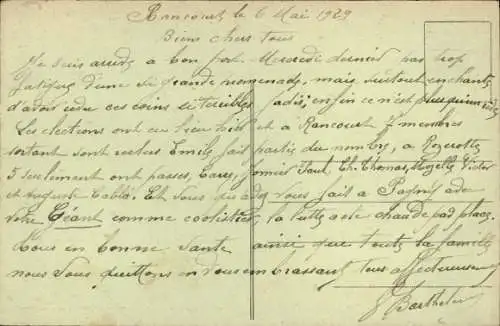 Rancourt le 6 Mai 1929
Biens chers tous
Je suis arrivé a bon port Mercredi dernier pas trop
fatiguée d'une si grande promenade, mais surtout enchantée
d'avoir revu ces coins si terribles jadis, enfin ce n'est plus qu'un rêve
Les elections ont eu lieu hier et a Rancourt 7 membres
sortant sont reelus Emile fait partie du nombre, a
5 seulement ont passés, Paul, Ch. Thomas, Victor
et Auguste Et vous avez vous fait a Pagny
votre Géant comme la lutte a ete chaude pas place
Nous en bonne sante ainsi que toute la famille
nous vous quittons en vous embrassant tous affectueusement
Barthelemy